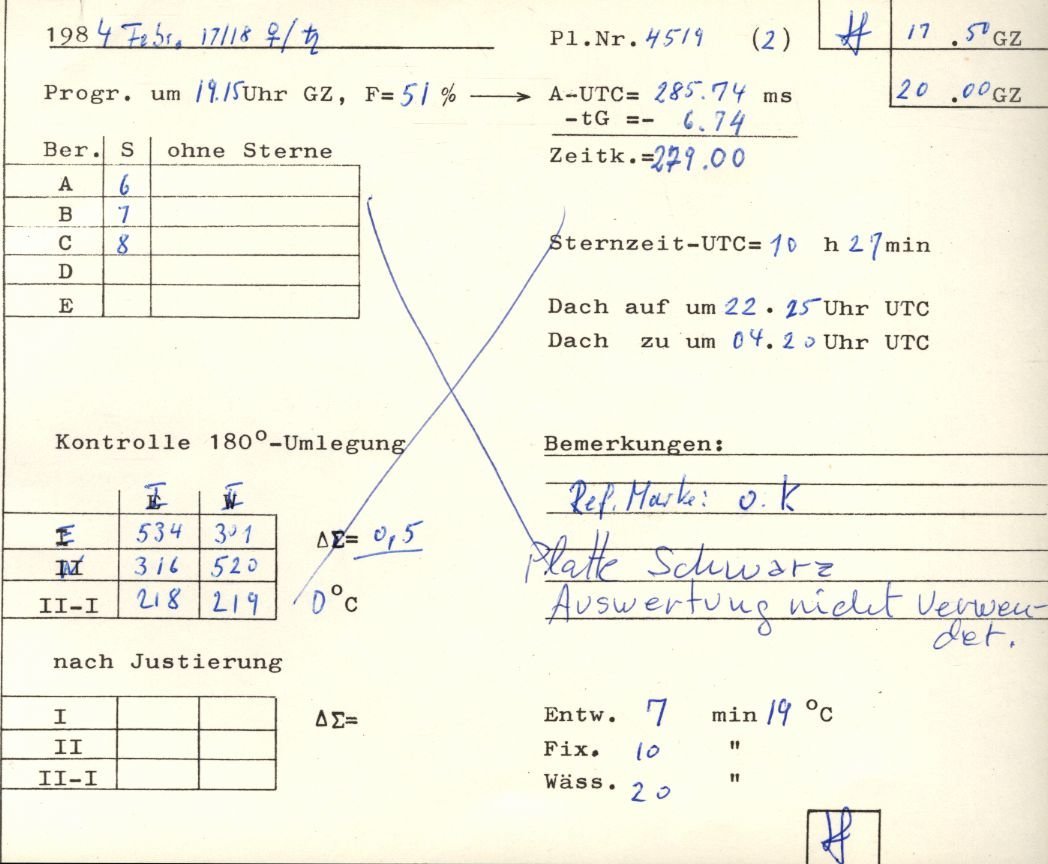 1984 Febr. 17/18 ♀/♄ Pl.Nr. 4519 (2) 17 .50 GZ
Progr. um 19.15 Uhr GZ, F= 51 % → A-UTC= 285.74 ms 20 .00 GZ
-tG =- 6.74
Zeitk.= 279.00
Ber. S ohne Sterne
A 6
B 7
C 8
D
E
Sternzeit-UTC= 10 h 27 min
Dach auf um 22.25 Uhr UTC
Dach zu um 04.20 Uhr UTC
Kontrolle 180°-Umlegung Bemerkungen:
Ref. Marke: o.K
534 301 ΔΣ= 0,5
316 520
II-I 218 219 0°C
Platte Schwarz
Auswertung nicht verwen-
det.
nach Justierung
I ΔΣ=
II
II-I
Entw. 7 min 19 °C
Fix. 10 "
Wäss. 20 "